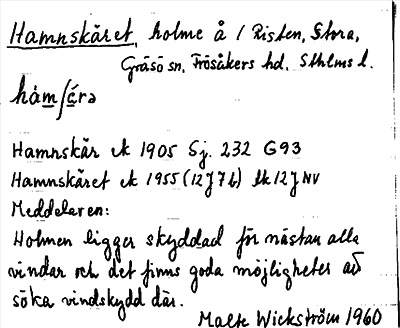 Hamnskäret, holme å / Risten, Stora,
Gräsö sn, Frösåkers hd, Sthlms l.
Hamnskär ek 1905 Sj. 232 G93
Hamnskäret ek 1955 (12J7b) bk 12J NV
Meddelaren:
Holmen ligger skyddad för nästan alla
vindar och det finns goda möjligheter att
söka vindskydd där.
Malte Wickström 1960